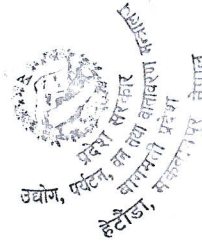 प्रदेश सरकार
उद्योग, पर्यटन, वन तथा वातावरण मन्त्रालय
बागमती प्रदेश
हेटौंडा, मकवानपुर नेपाल